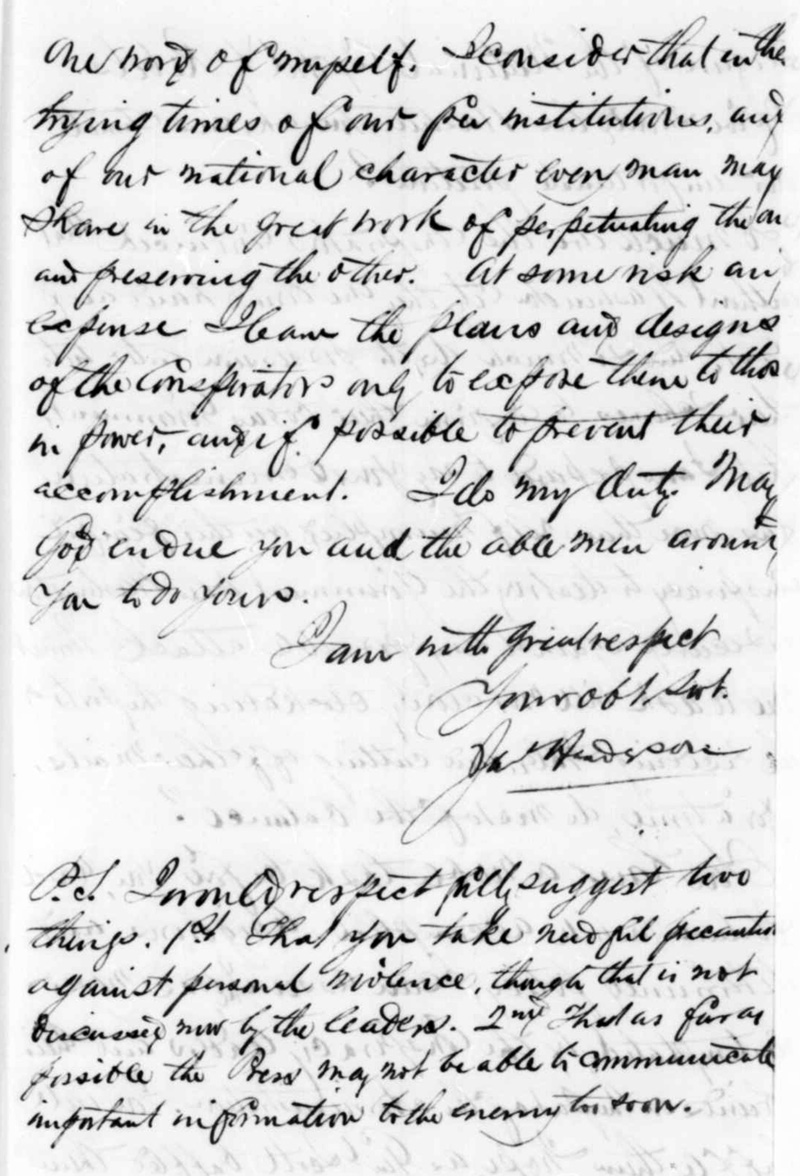 One word of myself. I consider that in the
trying times of our free institutions, and
of our national character every man may
share in the great work of perpetuating the one
and preserving the other. At some risk and
expense I learn the plans and designs
of the Conspirators only to expose them to those
in power, and if possible to prevent their
accomplishment. I do my duty. May
God endue you and the able men around
you to do yours.
I am with great respect
Your obt. Svt.
P.S. I would respectfully suggest two
things. 1st That you take needful precaution
against personal violence, though that is not
discussed now by the leaders. 2nd That as far as
possible the Press may not be able to communicate
important information to the enemy too soon.